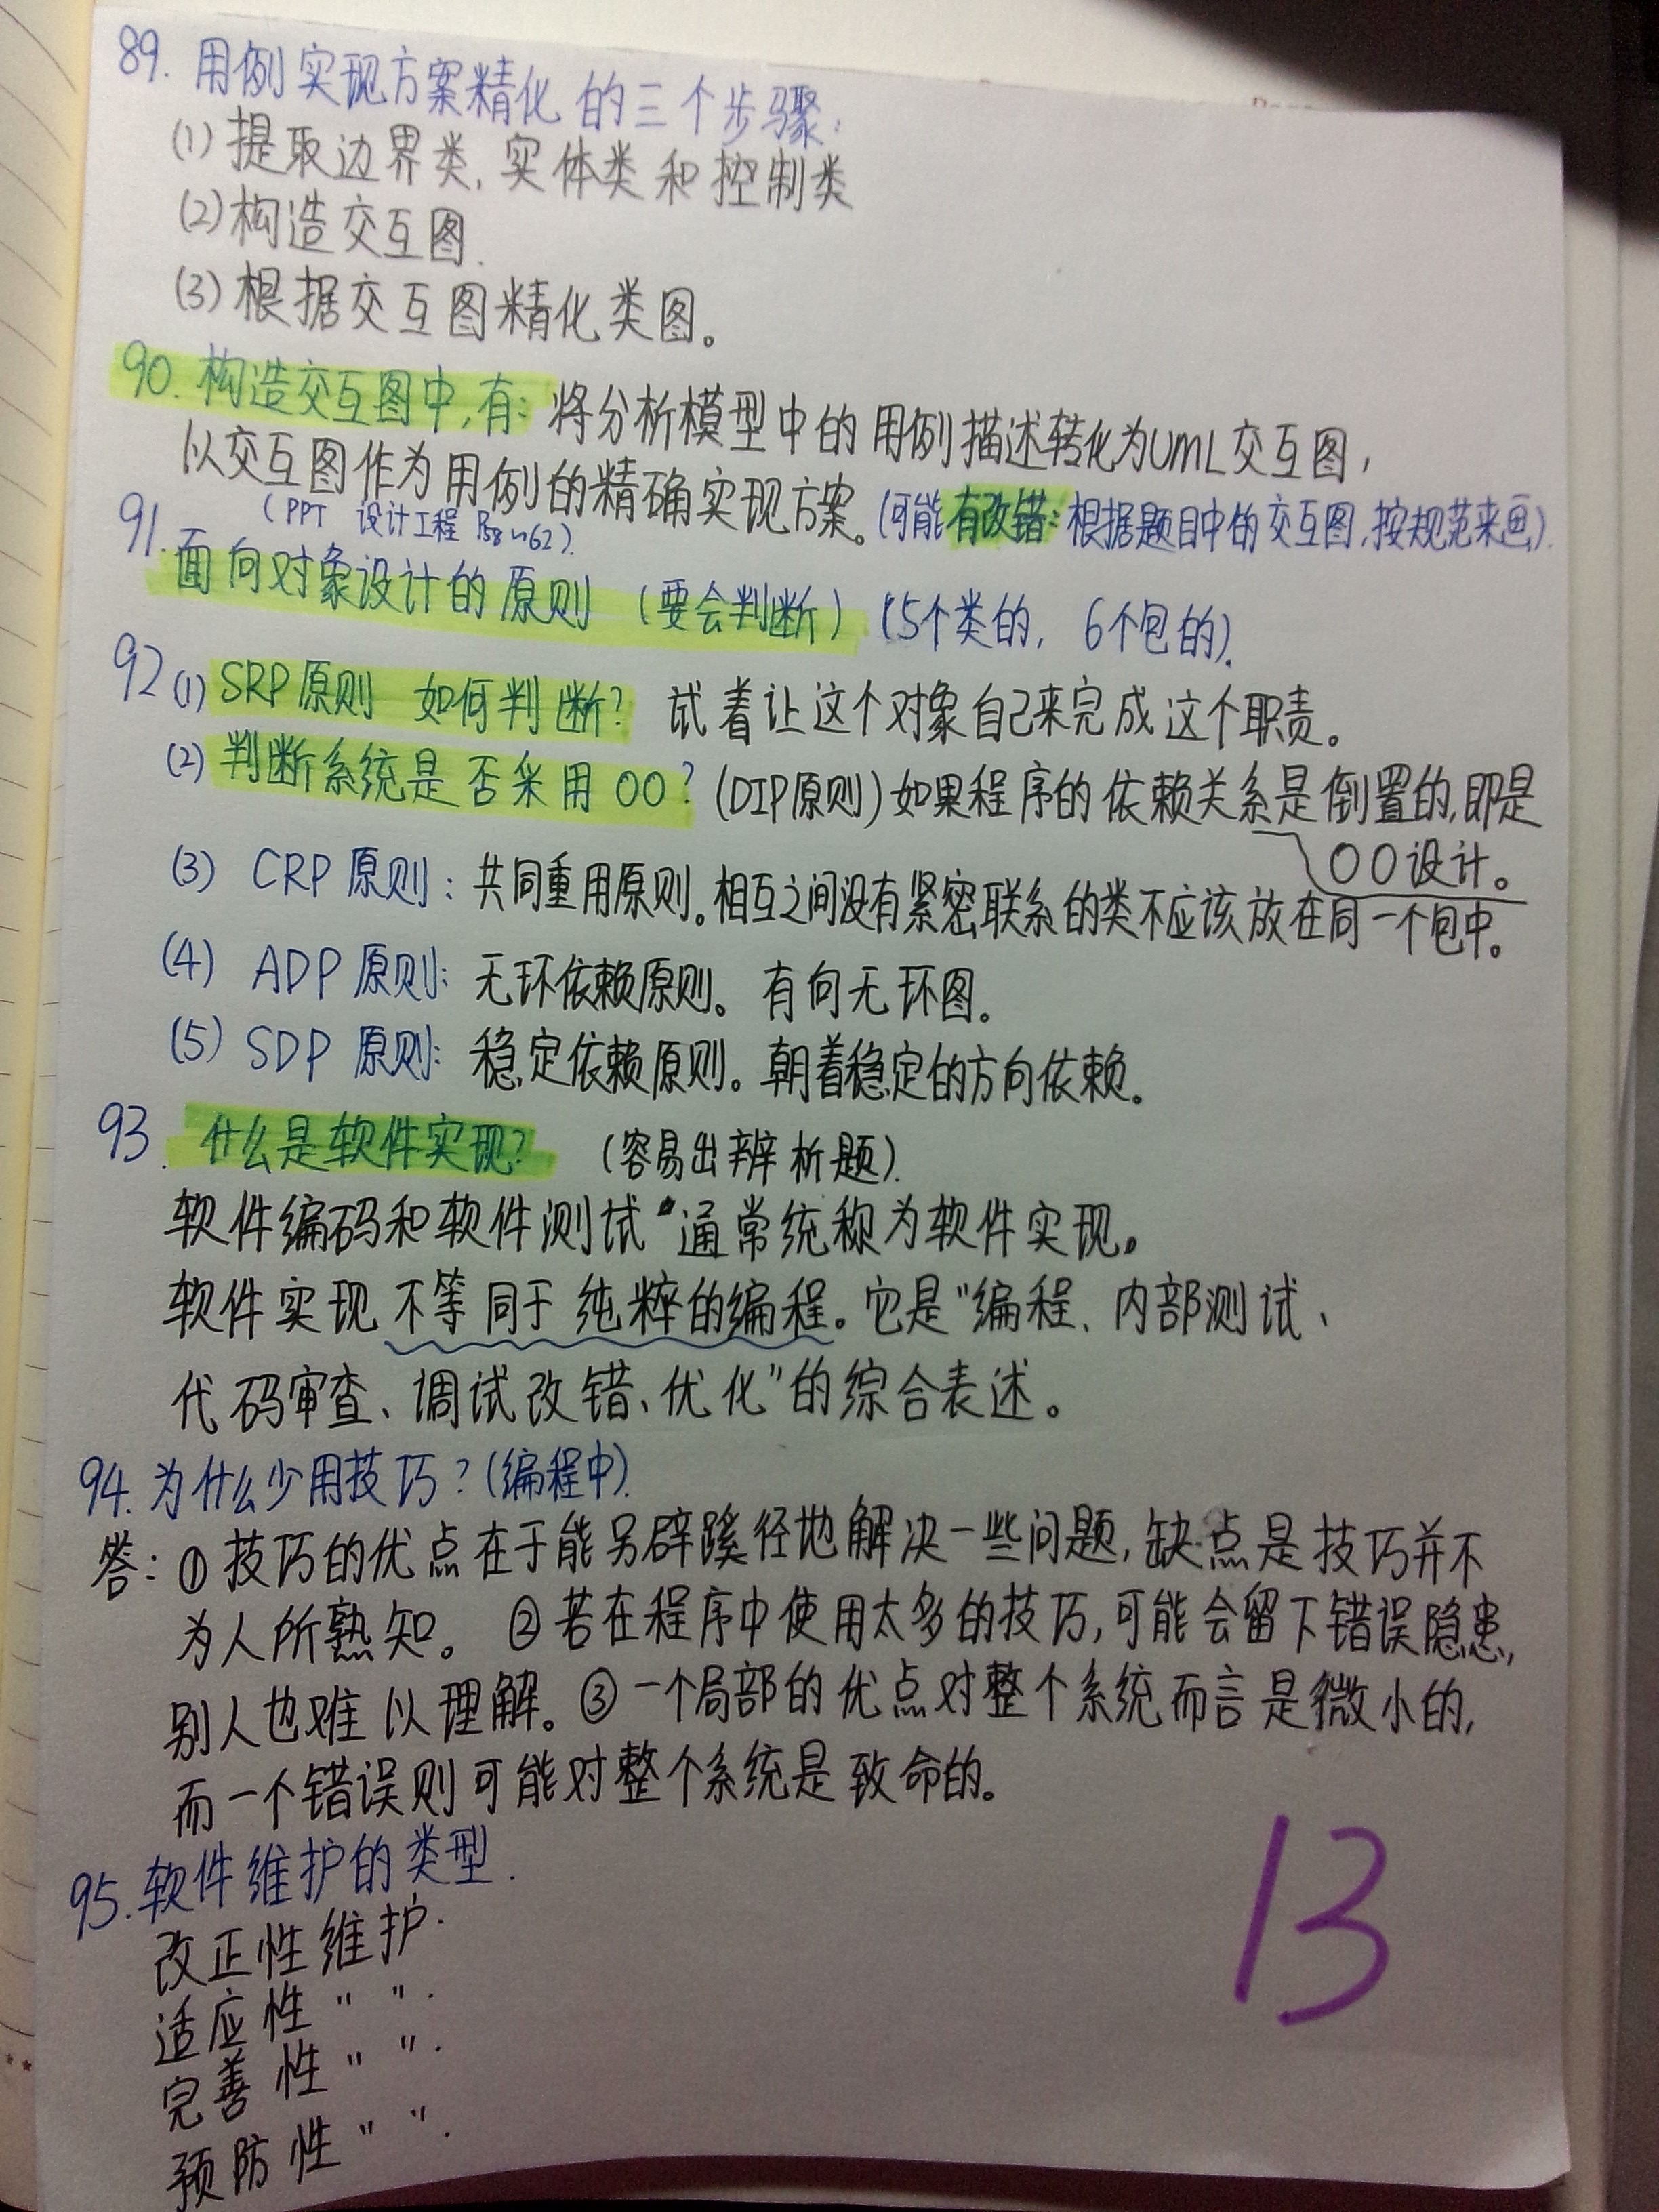 89. 用例实现方案精化的三个步骤:
(1) 提取边界类, 实体类和控制类
(2) 构造交互图.
(3) 根据交互图精化类图。
90. 构造交互图中,有: 将分析模型中的用例描述转化为UML交互图,
以交互图作为用例的精确实现方案。(可能有改错: 根据题目中的交互图,按规范来画).
(PPT 设计工程 P58~62).
91. 面向对象设计的原则 (要会判断) (5个类的, 6个包的).
92 (1) SRP原则 如何判断? 试着让这个对象自己来完成这个职责。
(2) 判断系统是否采用OO? (DIP原则) 如果程序的依赖关系是倒置的,即是
OO设计。
(3) CRP原则: 共同重用原则。相互之间没有紧密联系的类不应该放在同一个包中。
(4) ADP原则: 无环依赖原则。有向无环图。
(5) SDP原则: 稳定依赖原则。朝着稳定的方向依赖。
93. 什么是软件实现? (容易出辨析题).
软件编码和软件测试 通常统称为软件实现。
软件实现不等同于纯粹的编程。它是"编程、内部测试、
代码审查、调试改错、优化"的综合表述。
94. 为什么少用技巧? (编程中).
答: ① 技巧的优点在于能另辟蹊径地解决一些问题, 缺点是技巧并不
为人所熟知。 ② 若在程序中使用太多的技巧, 可能会留下错误隐患,
别人也难以理解。③ 一个局部的优点对整个系统而言是微小的,
而一个错误则可能对整个系统是致命的。
95. 软件维护的类型.
改正性维护.
适应性 " ".
完善性 " ".
预防性 " ".
13